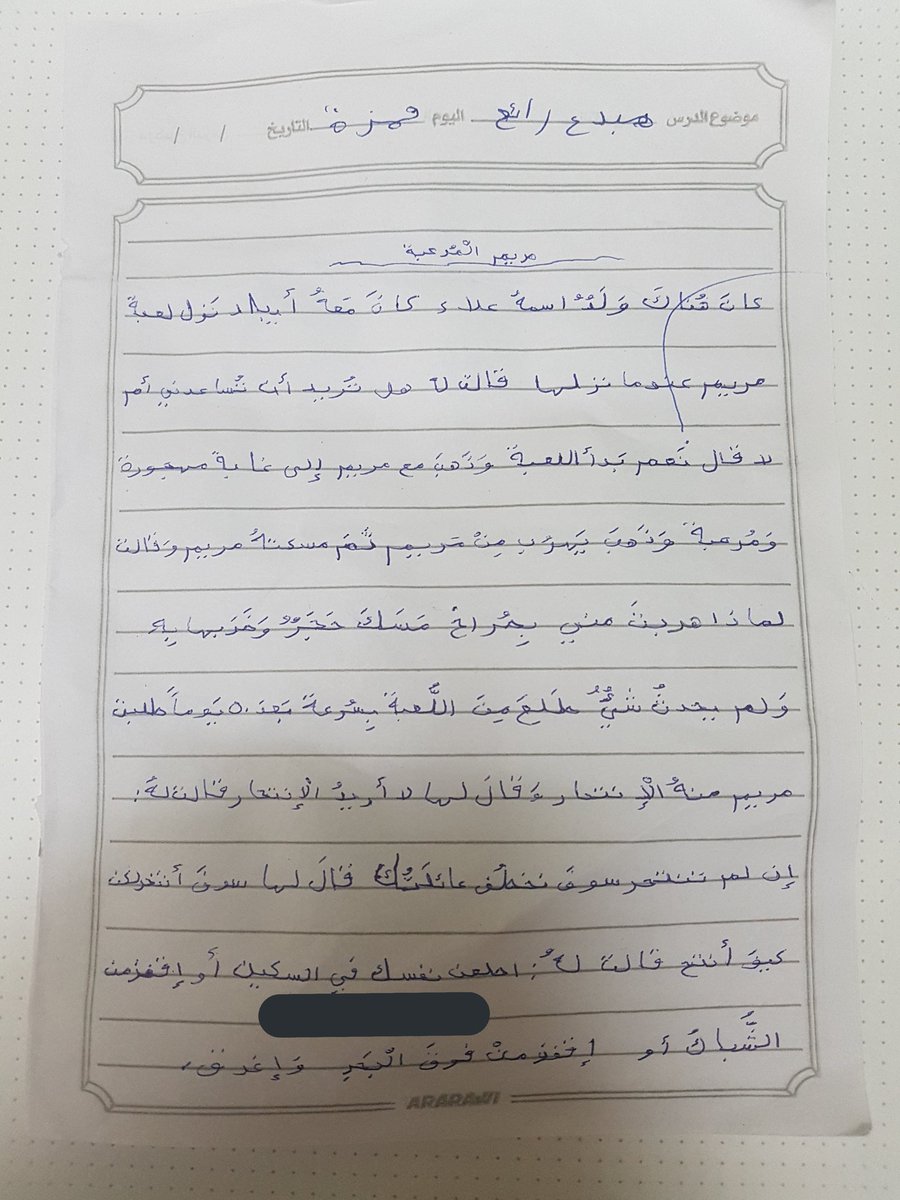 موضوع الدرس مبدع رائع اليوم همزة التاريخ / /
مريم الْمُرعبة
كانَ هُناكَ وَلَدٌ اسمهُ علاء كانَ مَعهُ أيباد نَزل لعبة
مريم عندما نزلها قالت لهُ هل تُريد أن تُساعدني أم
لا قال نَعم بَدأ اللعبة وَذَهبَ مع مريم إلى غابة مهجورة
وَمُرعبة وَذَهبَ يَهرُب مِنْ مَريم ثُمَ مسكتهُ مريم وَقالت
لماذا هربتَ مني يجُراح مَسَكَ حَجَرٌ وَضَربها بِهِ
وَلم يحدثُ شَيْءٌ طَلعَ مِنَ اللُّعبة بِسُرعة بَعدَ ٥٠ يَوماً طلبت
مريم منهُ الْإِنتحار وَقالَ لها لا أريدُ الْإِنتحار قالت لهُ:
إن لم تنتحر سوفَ نخطُف عائلَتُك قالَ لها سوفَ أنتحر لكن
كيفَ أنتح قالت لهُ: اطعن نفسك في السكين أو إقفز من
الشُّباكَ أو إقفز منْ فوقَ الْبَحرِ وَإغرق،
ARARAWI